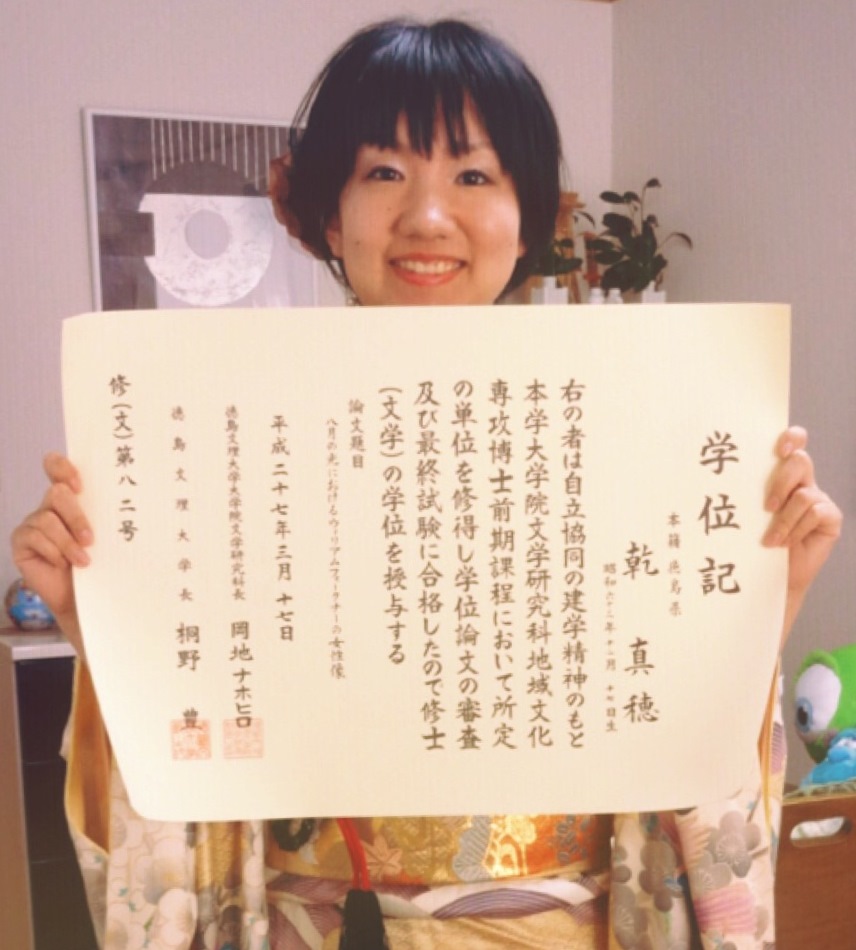 学位記
本籍 徳島県
乾 真穂
昭和六十三年十二月十七日生
右の者は自立協同の建学精神のもと
本学大学院文学研究科地域文化
専攻博士前期課程において所定
の単位を修得し学位論文の審査
及び最終試験に合格したので修士
(文学)の学位を授与する
論文題目
八月の光におけるウィリアムフォークナーの女性像
平成二十七年三月十七日
徳島文理大学大学院文学研究科長 岡地ナホヒロ
徳島文理大学長 桐野 豊
修(文)第八二号